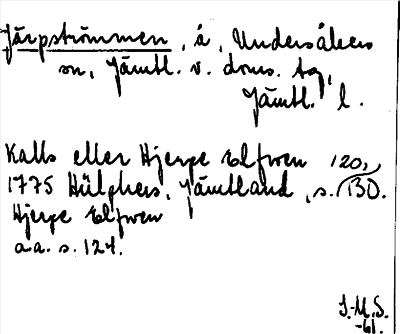 Järpströmmen, å, Undersåkers
sn, Jämtl. v. doms. tg,
Jämtl. l.
Kalls eller Hjerpe Elfwen 120,
1775 Hülphers, Jämtland, s. 130.
Hjerpe Elfwen
a.a. s. 124.
J.M.S.
-61.